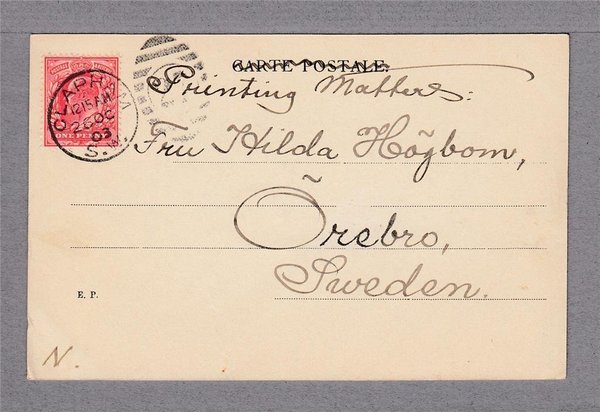 CARTE POSTALE.
Printing Matters:
CLAPHAM
12.15 AM
26 OC
03
S.W.
ONE PENNY
Fru Hilda Högbom,
Örebro,
Sweden.
E. P.
N.